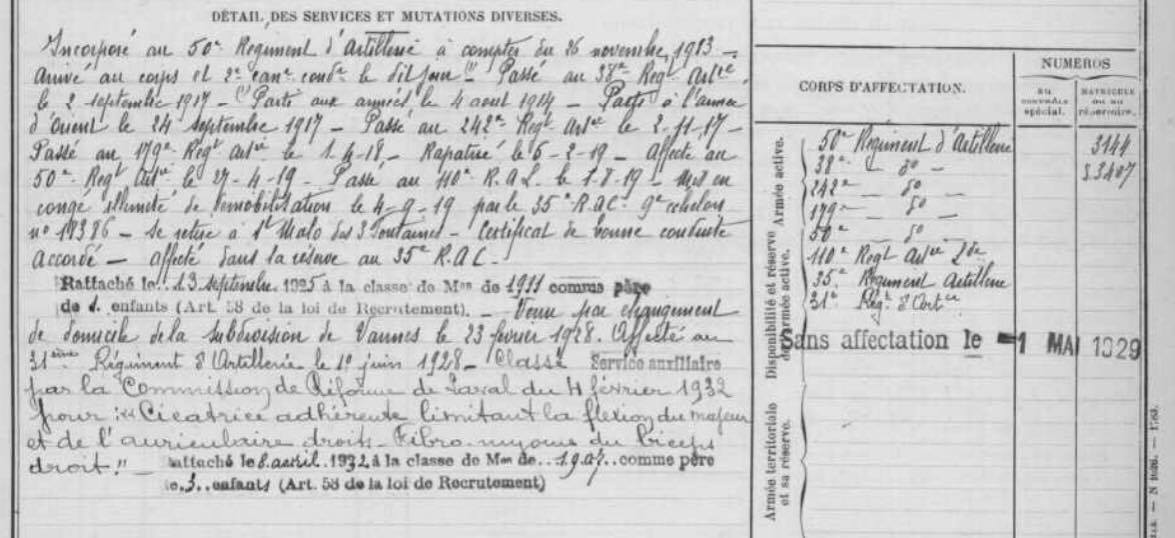 DÉTAIL DES SERVICES ET MUTATIONS DIVERSES.
Incorporé au 50e Régiment d'Artillerie à compter du 26 novembre 1913 —
arrivé au corps et 2e can. cond. le dit jour (1) Passé au 38e Regt Artie
le 2 septembre 1917 — (1) Parti aux armées le 4 aout 1914 — Parti à l'armée
d'Orient le 24 septembre 1917 — Passé au 242e Regt Artie le 2-11-17 —
Passé au 179e Regt Artie le 1-4-18 — Rapatrié le 6-2-19 — Affecté au
50e Regt Artie le 27-4-19 — Passé au 110e R.A.L. le 1-8-19 — Mis en
congé illimité de démobilisation le 4-9-19 par le 35e R.A.C. 9e echelon
se retire à St Malo des 3 Fontaines — Certificat de bonne conduite
accordé — affecté dans la réserve au 35e R.A.C. —
Rattaché le 13 septembre 1925 à la classe de Mon de 1911 comme père
de enfants (Art. 58 de la loi de Recrutement). — Venu par changement
de domicile de la subdivision de Vannes le 23 février 1928. Affecté au
31ème Régiment d'Artillerie le 1er juin 1928 — Classé Service auxiliaire
par la Commission de Réforme de Laval du 4 février 1932
pour : "Cicatrice adhérente limitant la flexion du majeur
et de l'auriculaire droits. Fibro-myome du biceps
droit." — Rattaché le 8 avril 1932 à la classe de Mon de 1907 comme père
de 3 enfants (Art. 58 de la loi de Recrutement)
CORPS D'AFFECTATION.
NUMÉROS
AU CONTROLE spécial.
MATRICULE OU AU répertoire.
Armée active.
50e Régiment d'Artillerie 3144
38e — do — 53407
242e — do —
179e — do —
50e — do —
Disponibilité et réserve de l'armée active.
110e Regt Artie Lde
35e Régiment Artillerie
31e Regt d'Artie
Sans affectation le 1 MAI 1929
Armée territoriale et sa réserve.